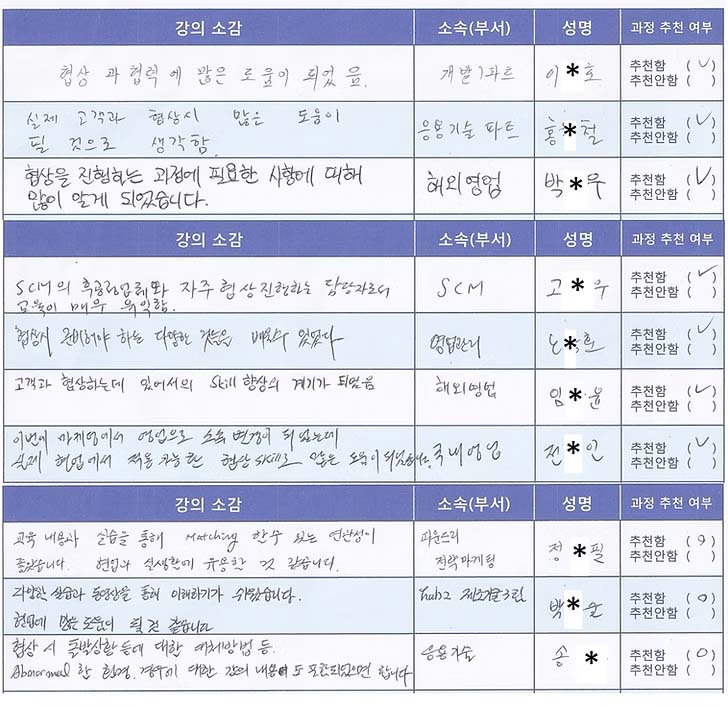 강의 소감 소속(부서) 성명 과정 추천 여부
협상 과 협력 에 많은 도움이 되었 음. 개발1파트 이*호 추천함 (✓)
추천안함 ( )
실제 고객과 협상시 많은 도움이 응용기술 파트 홍*철 추천함 (✓)
될 것으로 생각함. 추천안함 ( )
협상을 진행하는 과정에 필요한 사항에 대해 해외영업 박*우 추천함 (✓)
많이 알게 되었습니다. 추천안함 ( )
강의 소감 소속(부서) 성명 과정 추천 여부
SCM의 자주 협상진행하는 담당자로서 SCM 고*우 추천함 (✓)
교육이 매우 유익함. 추천안함 ( )
협상시 준비해야 하는 다양한 것들을 배울수 있었다 영업관리 추천함 (✓)
추천안함 ( )
고객과 협상하는데 있어서의 Skill 향상의 계기가 되었음 해외영업 임*윤 추천함 (✓)
추천안함 ( )
이번에 마케팅에서 영업으로 소속 변경이 되었는데 국내영업 전*인 추천함 (✓)
실제 현업에서 적용 가능한 협상 skill로 많은 도움이 되었습니다. 추천안함 ( )
강의 소감 소속(부서) 성명 과정 추천 여부
교육 내용과 실습을 통해 Matching 할 수 있는 연관성이 파운드리 정*필 추천함 (○)
좋았습니다. 현업과 실생활에 유용한 것 같습니다. 전략마케팅 추천안함 ( )
다양한 실습과 동영상을 통해 이해하기가 쉬웠습니다. 박* 추천함 (○)
현업에 많은 도움이 될 것 같습니다 추천안함 ( )
협상 시 돌발상황 등에 대한 대처방법 등. 응용기술 송* 추천함 (○)
Abnormal 한 환경, 경우에 대한 강의 내용이 더 포함되었으면 합니다 추천안함 ( )